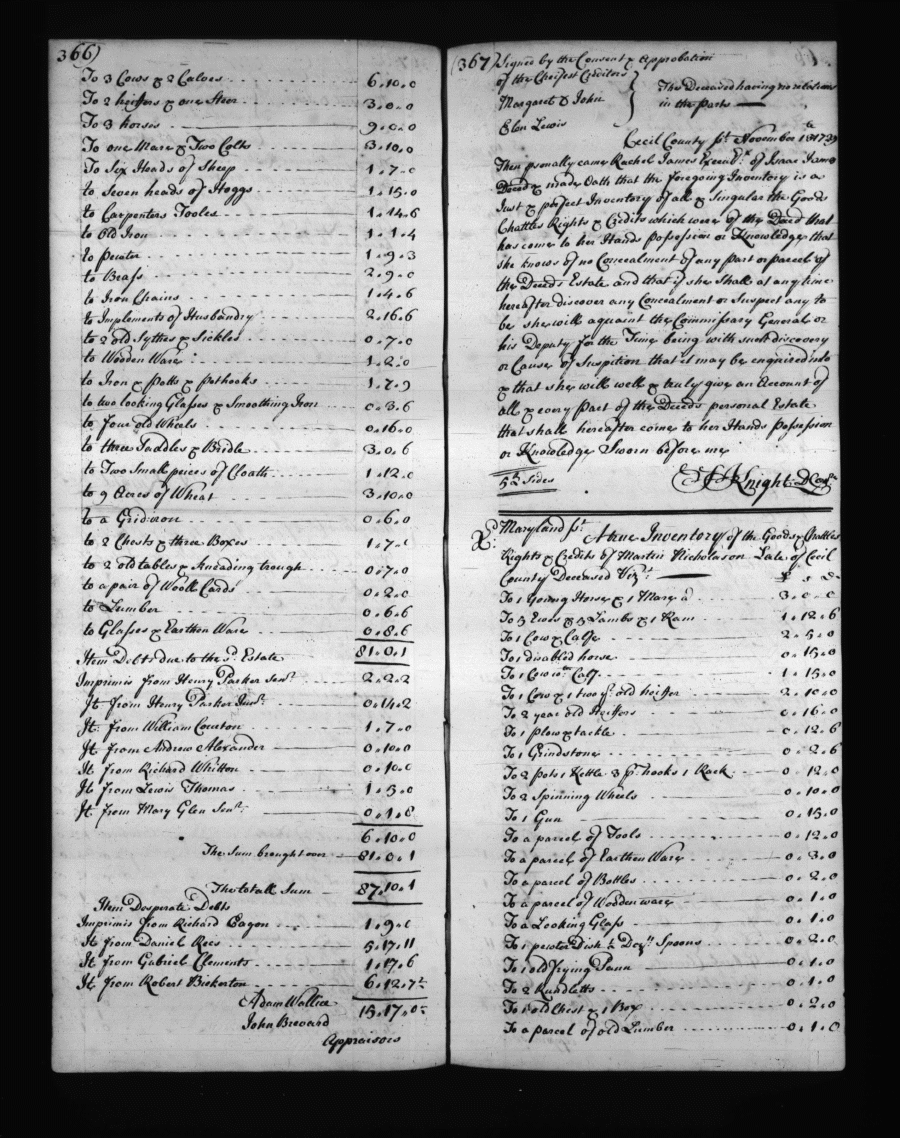 366)
To 3 Cows & 2 Calves 6.10.0
To 2 heiffers & one Steer 3.0.0
To 3 horses 9.0.0
To one Mare & Two Colts 3.10.0
To Six Heads of Sheep 1.7.0
to Seven heads of Hoggs 1.15.0
to Carpenters Tooles 1.14.6
to Old Iron 1.1.4
to pewter 1.9.3
to Brass 2.9.0
to Iron Chains 1.4.6
to Implements of Husbandry 2.16.6
to 2 old Sythes & Sickles 0.7.0
to Wooden Ware 1.2.0
to Iron & Potts & Pothooks 1.7.9
to two looking Glasses & Smoothing Iron 0.3.6
to four old Wheels 0.16.0
to three Saddles & Bridle 3.0.6
to Two Small peices of Cloath 1.12.0
to 9 Acres of Wheat 3.10.0
to a Gridiron 0.6.0
to 2 Chests & three Boxes 1.7.
to 2 old tables & Kneading trough 0.7.0
to a pair of Wooll Cards 0.2.0
to Lumber 0.6.6
to Glasses & Earthen Ware 0.8.6
Item Debts due to the sd. Estate 81.0.1
Imprimis from Henry Parker Senr. 2.2.2
It from Henry Parker Junr. 0.14.2
It: from William Couton 1.7.0
It from Andrew Alexander 0.10.0
It from Richard Whitton 0.10.0
It from Lewis Thomas 1.5.0
It from Mary Glen Senr. 0.1.8
6.10.0
The Sum brought over 81.0.1
The totall Sum 87.10.1
Item Desperate Debts
Imprimis from Richard Eagon 1.9.0
It from Daniel Rees 5.17.11
It from Gabriel Clements 1.17.6
It from Robert Bickerton 6.12.7½
Adam Wallace 15.17.0½
John Brevard
Appraisors
(367) Signed by the Consent & Approbation
of the Cheifest Creditors
Margaret & John
Glen Lewis
The Deceased having no relations
in the Parts
Cecil County ss. November 1739
Then psonally came Rachel James Execux. of Isaac James
Deced & made Oath that the foregoing Inventory is a
Just & perfect Inventory of all & Singular the Goods
Chattles Rights & Credits which were of the Deced that
has come to her Hands Possession or Knowledge that
she knows of no Concealment of any Part or parcel of
the Deceds Estate and that if she Shall at any time
hereafter discover any Concealment or Suspect any to
be she will aquaint the Commissary General or
his Deputy for the Time being with such discovery
or Cause of Suspition that it may be enquired into
& that she will well & truly give an Account of
all & every Part of the Deceds personal Estate
that shall hereafter come to her Hands Possession
or Knowledge Sworn before me
5¼ Sides
Knight D Comry
Maryland ss. A true Inventory of the Goods Chattles
Rights & Credits of Martin Nicholason Late of Cecil
County Deceased Vizt. £ s d
To 1 Young Horse & 1 Mare 3.0.0
To 5 Ewes & 5 Lambs & 1 Ram 1.12.6
To 1 Cow & Calfe 2.5.0
To 1 disabled horse 0.15.0
To 1 Cow wth Calf 1.15.0
To 1 Cow & 1 two yr. old heiffer 2.10.0
To 2 year old Heiffers 0.16.0
To 1 plow & tackle 0.12.6
To 1 Grindstone 0.2.6
To 2 pots 1 Kettle 3 pr. hooks 1 Rack 0.12.0
To 2 Spinning Wheels 0.10.0
To 1 Gun 0.15.0
To a parcel of Tools 0.12.0
To a parcel of Earthen Ware 0.3.0
To a parcel of Bottles 0.2.0
To a parcel of Wooden ware 0.1.0
To a Looking Glass 0.1.0
To 1 pewter Dish ½ Dozn. Spoons 0.2.0
To 1 old frying Pann 0.1.0
To 2 Rundletts 0.1.0
To 1 old Chest & 1 Box 0.2.0
To a parcel of old Lumber 0.1.0